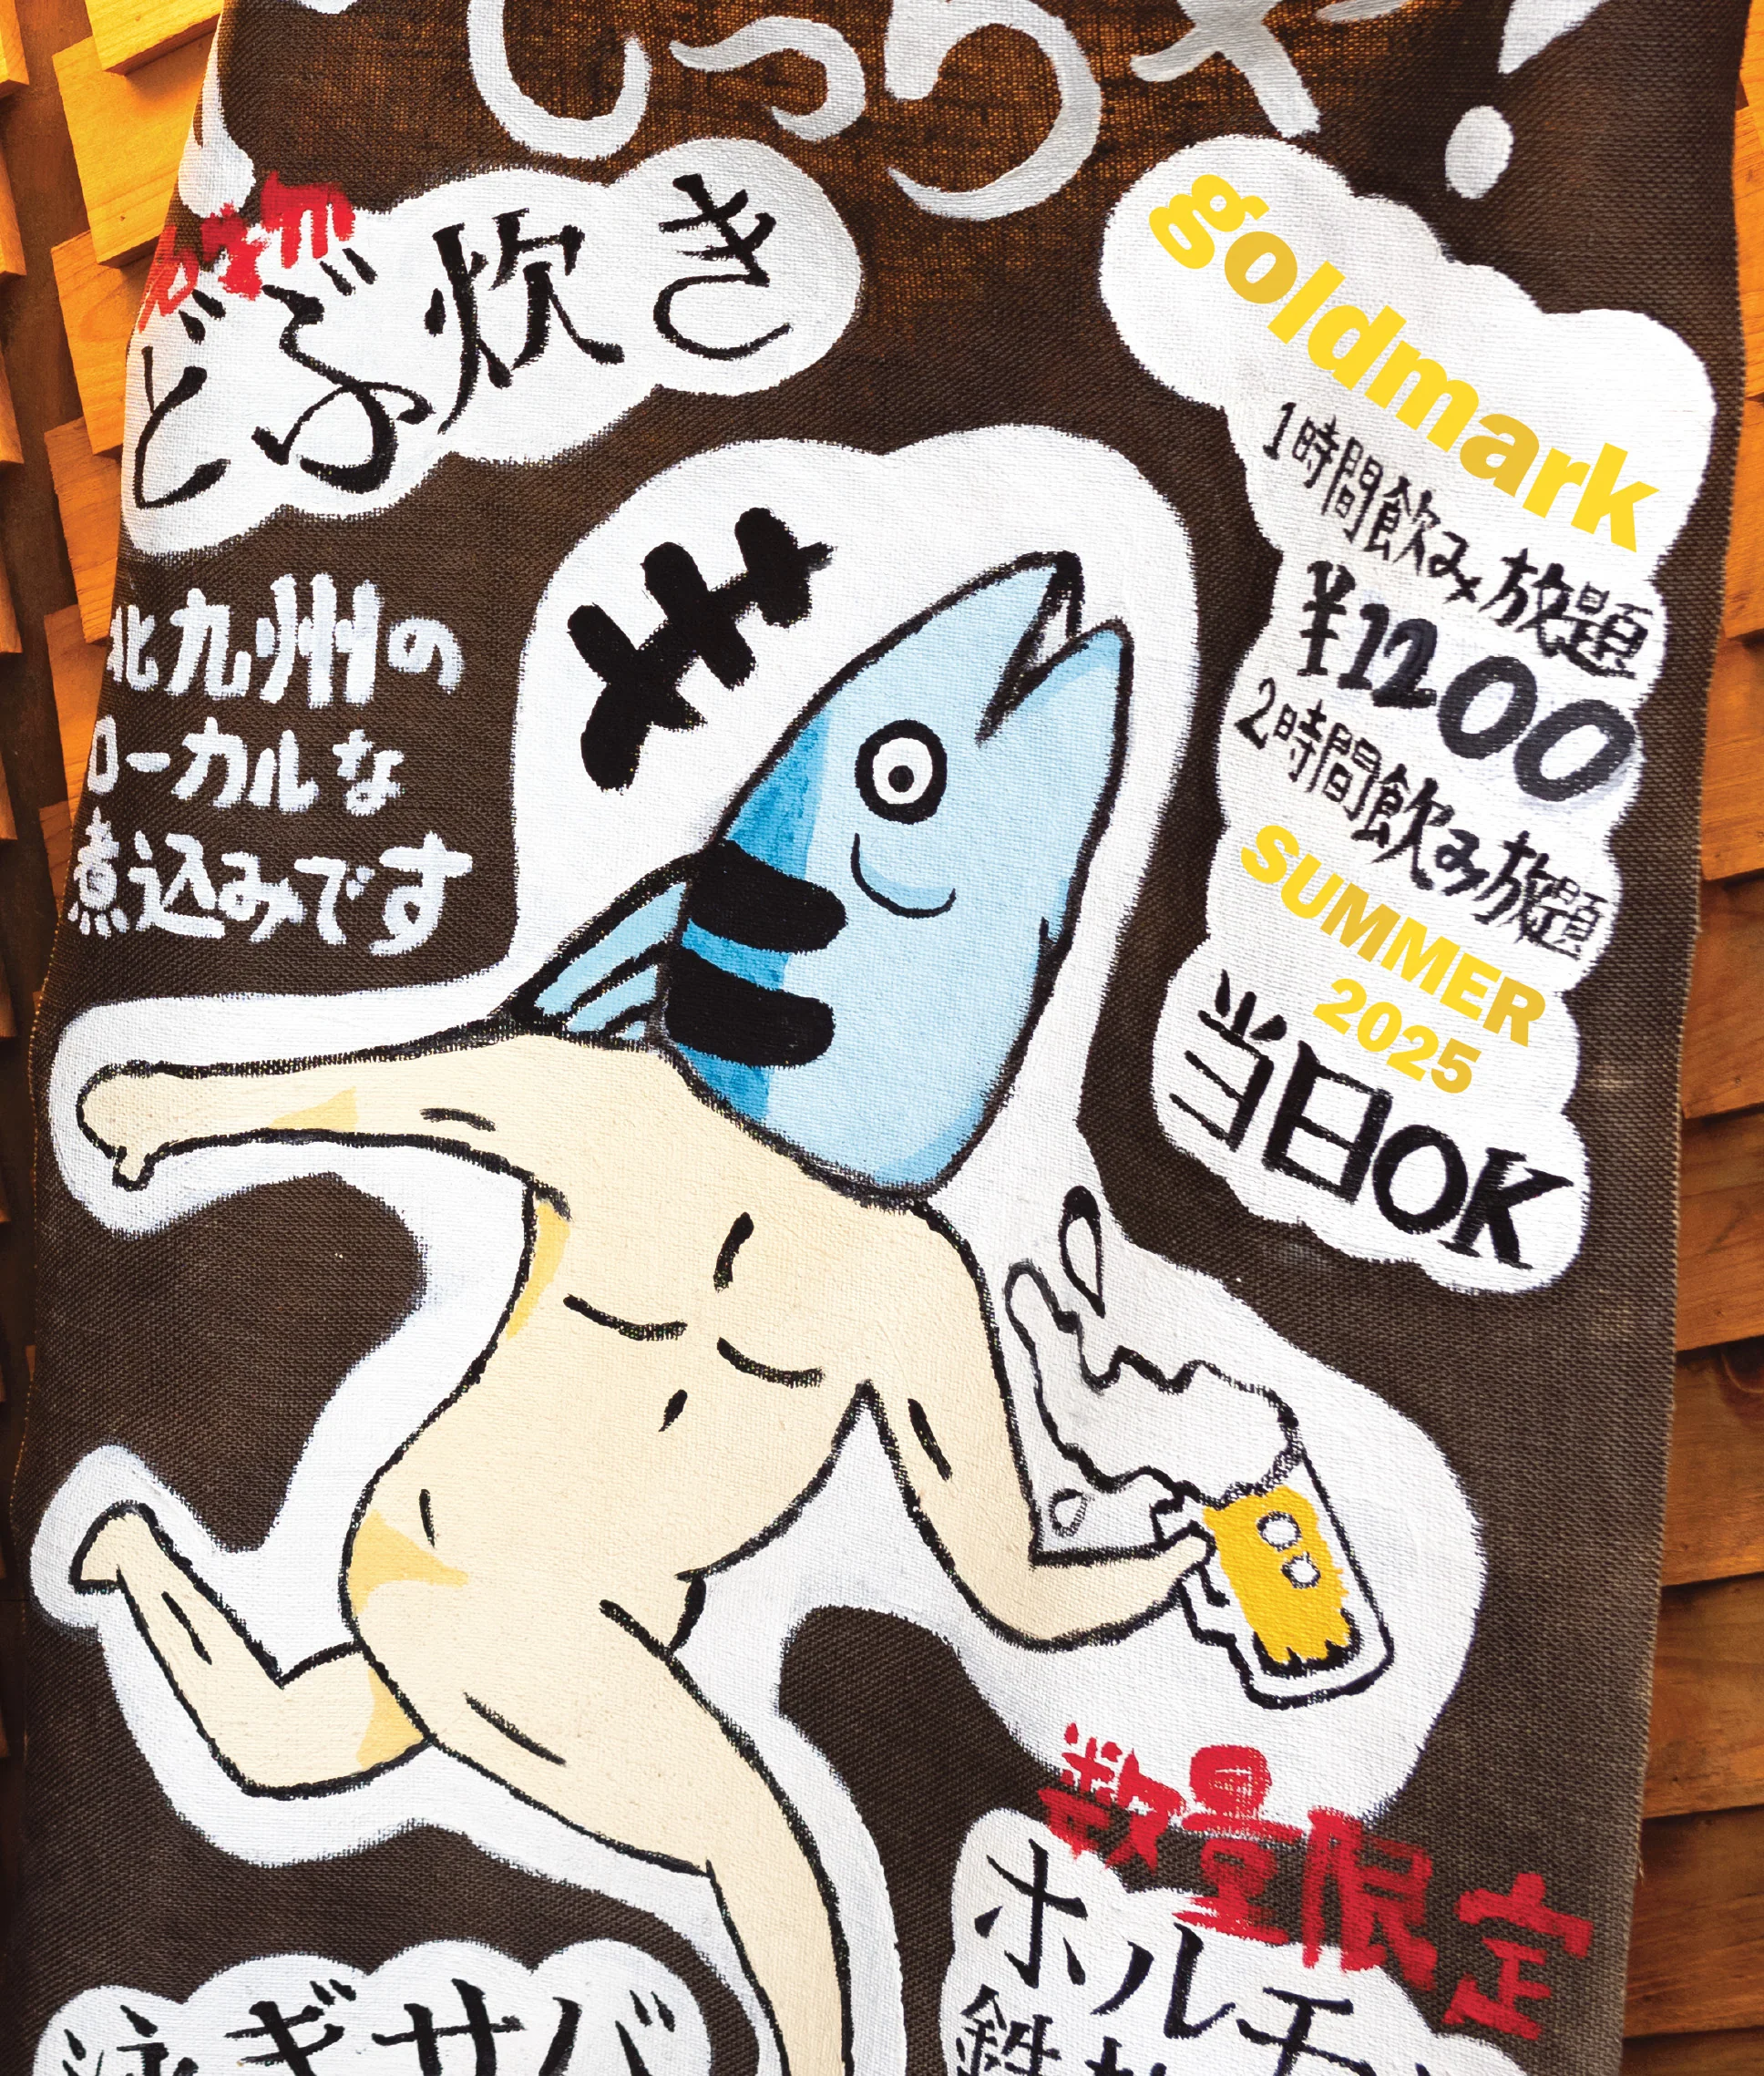 しっちゃ!
どぶ炊き
北九州の
ローカルな
煮込みです
goldmark
1時間飲み放題
¥1200
2時間飲み放題
SUMMER
2025
当日OK
数量限定
ホルモ
泳ギサバ